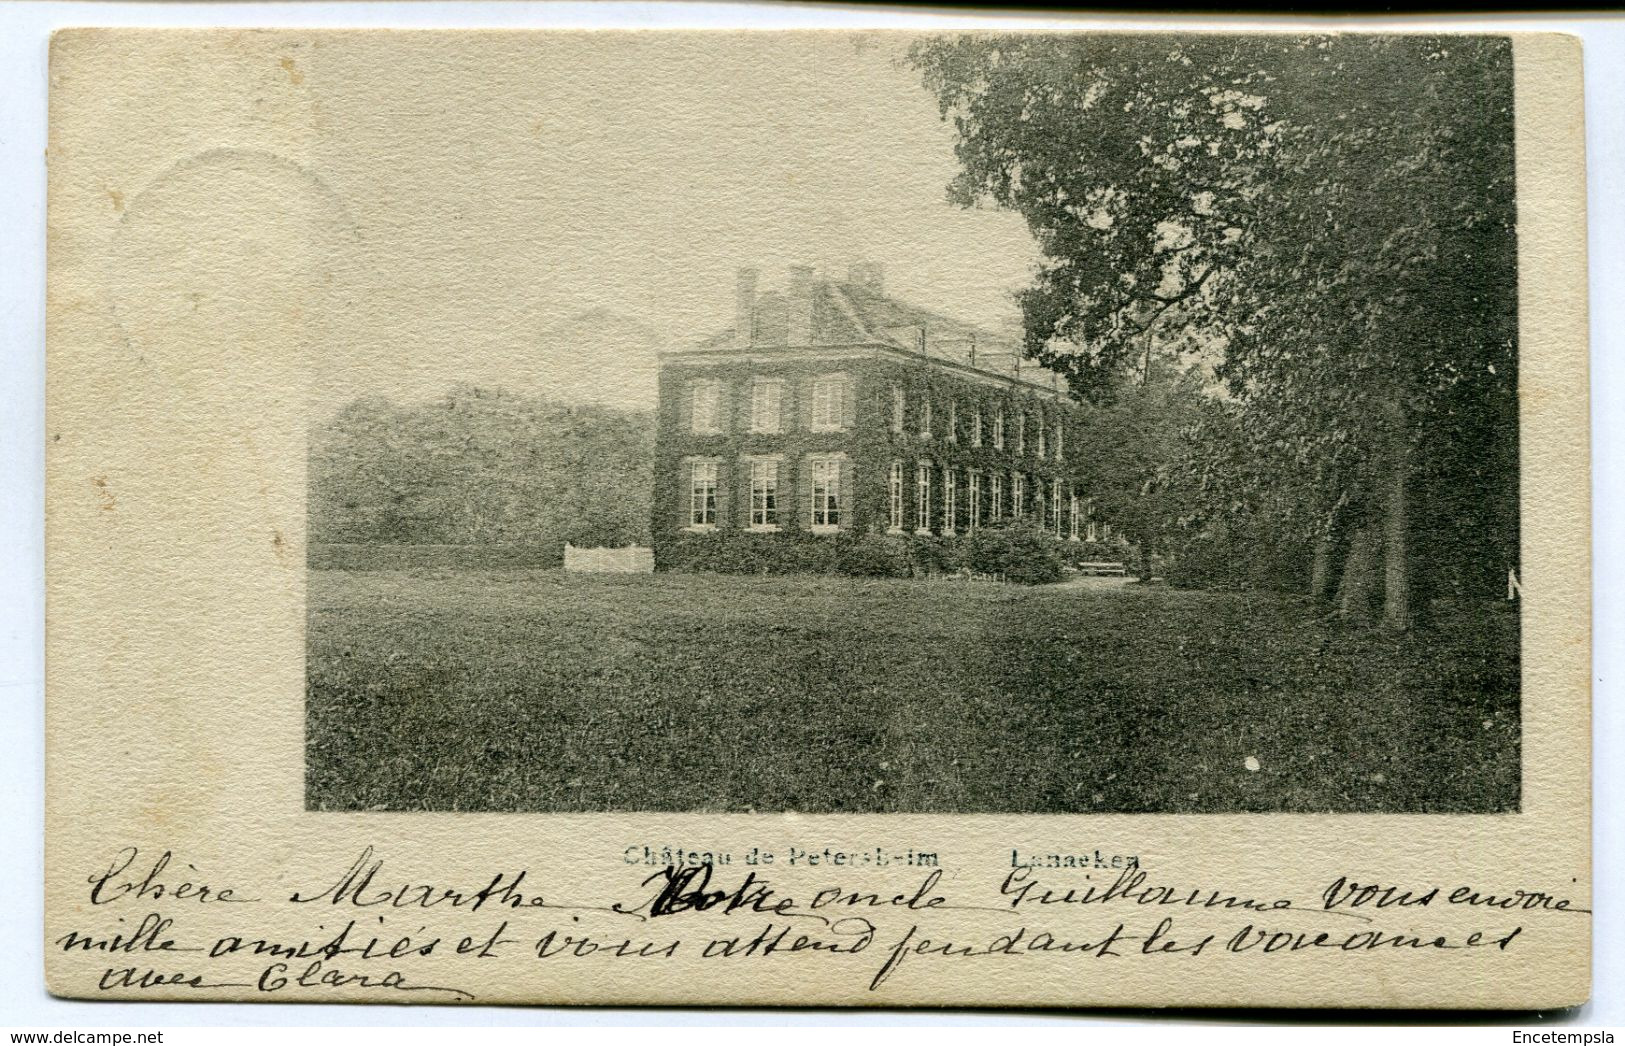 Château de Petersheim Lanaeken
Chère Marthe Votre oncle Guillaume vous envoie
mille amitiés et vous attend pendant les vacances
avec Clara
N
Encetempsla